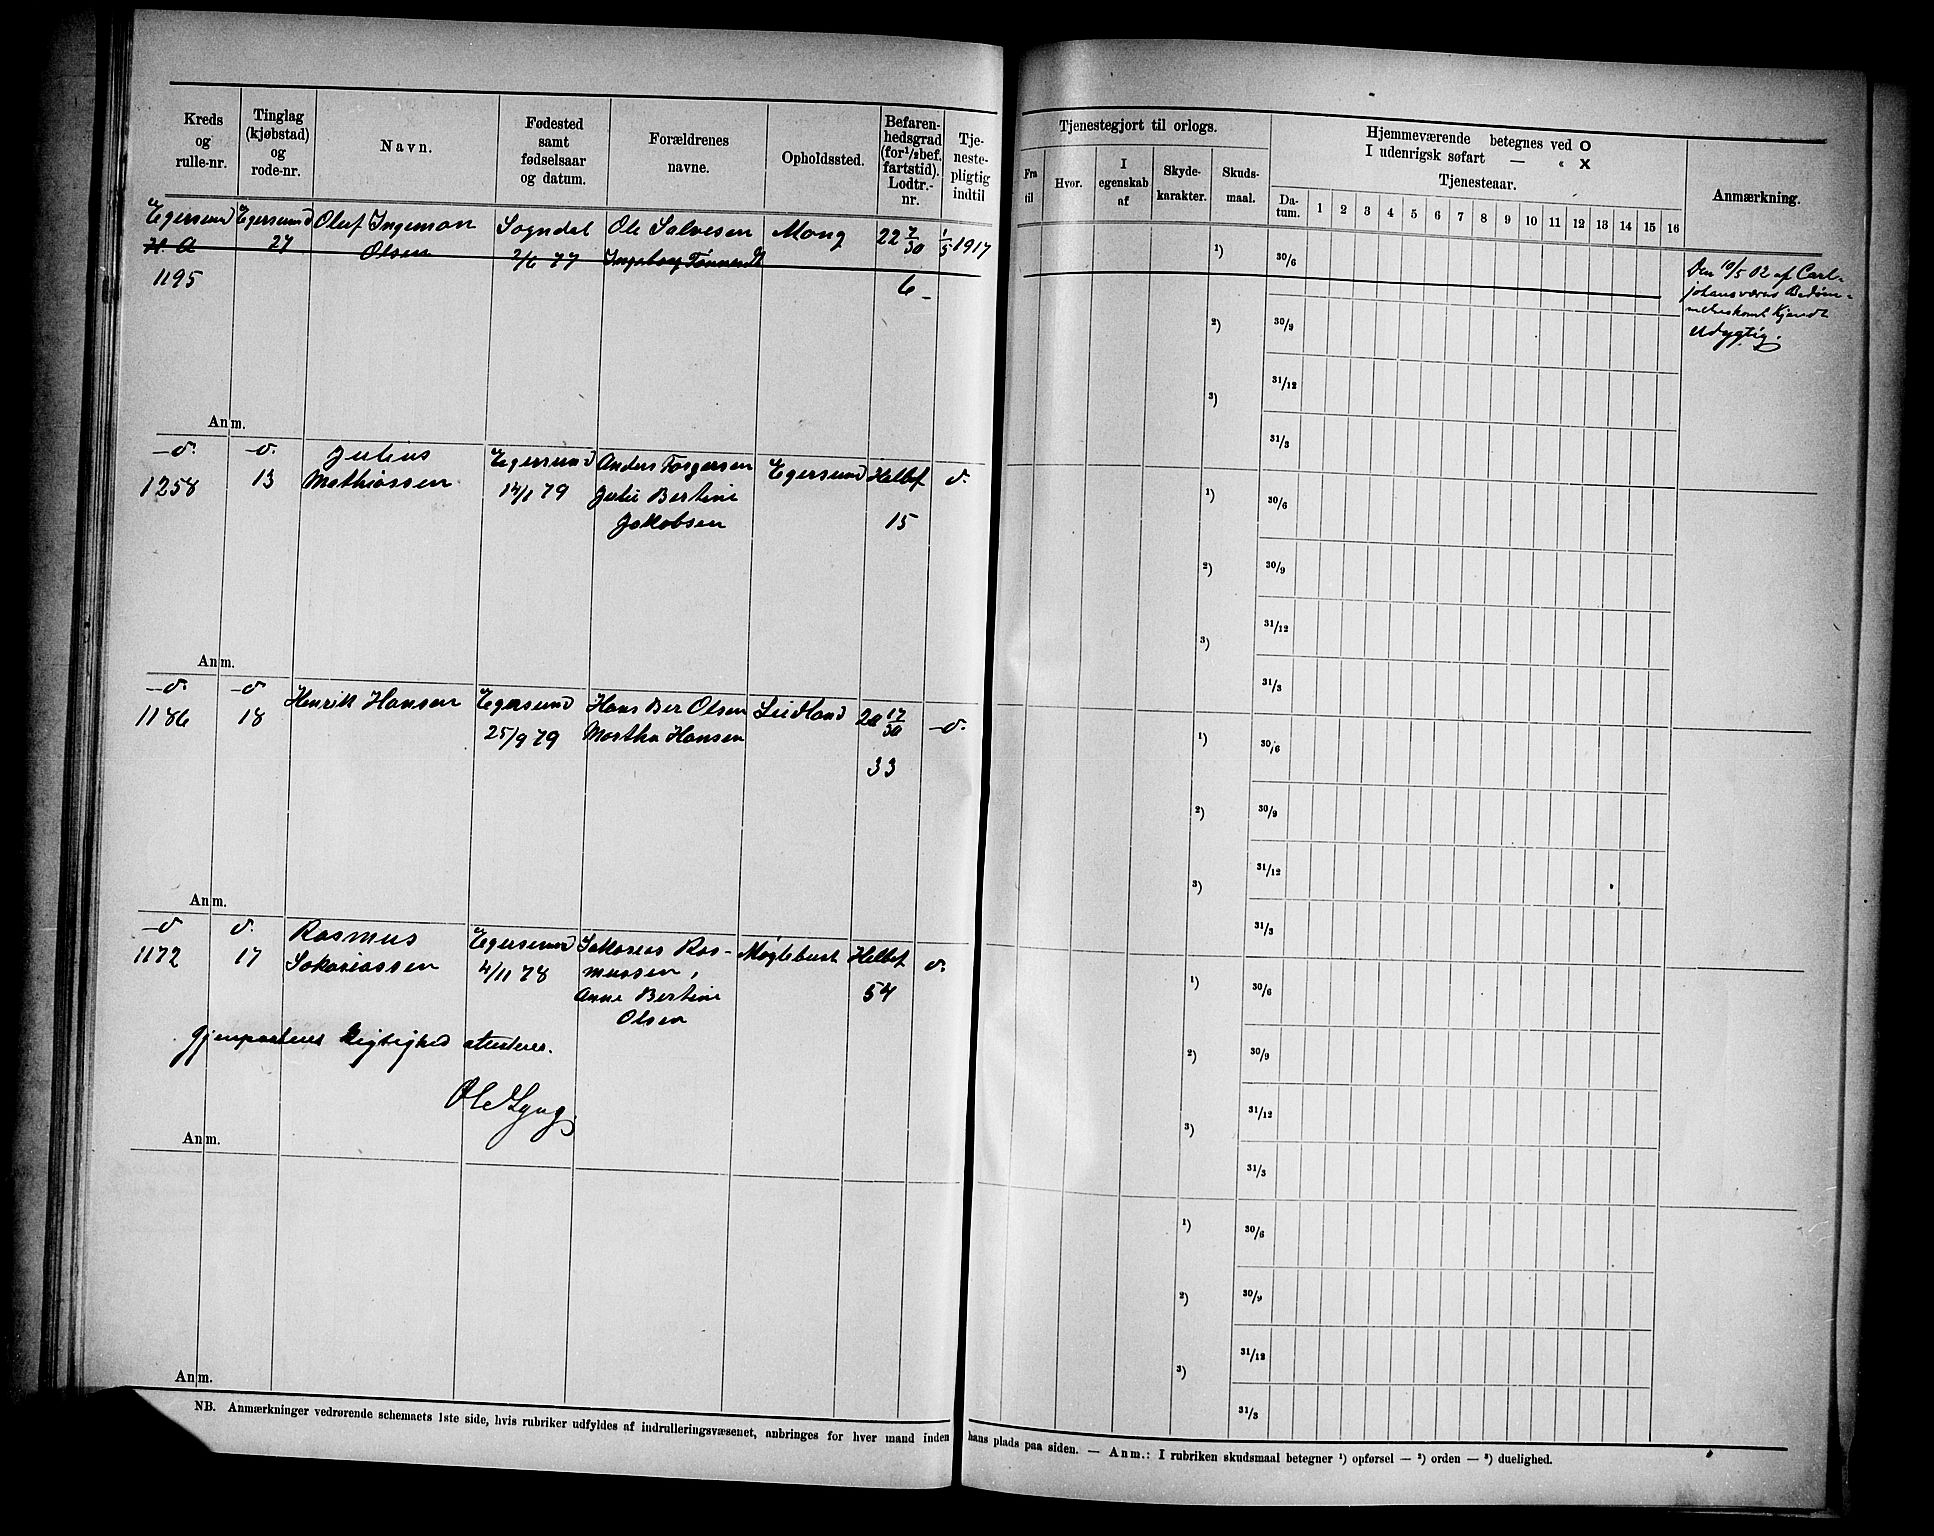 Kreds og rulle-nr.
Tinglag (kjøbstad) og rode-nr.
Navn.
Fødested samt fødselsaar og datum.
Forældrenes navne.
Opholdssted.
Befaren-hedsgrad (for 1/2 bef. fartstid). Lodtr.-nr.
Tje-neste-pligtig indtil
Tjenestegjort til orlogs.
Fra til
Hvor.
I egenskab af
Skyde-karakter.
Skuds-maal.
Hjemmeværende betegnes ved O
I udenrigsk søfart — « X
Tjenesteaar.
Da-tum. 1 2 3 4 5 6 7 8 9 10 11 12 13 14 15 16
Anmærkning.
Egersund Egersund Oluf Ingeman Sogndal Ole Salvesen Mong 22 7/30 1/5 1917
H A 27 Olsen 2/6 77 Ingeborg
1195 6
1) 30/6
2) 30/9
31/12
3)
31/3
Den 10/5 02 af Carl-
johansværns Bedøm-
melseskom. kjendt
udygtig.
Anm.
—d. —d. Julius Egersund Anders Torgersen Egersund Helbef d.
1258 13 Mathiassen 14/1 79 Julie Bertine
Jakobsen 15
1) 30/6
2) 30/9
31/12
3)
31/3
Anm.
—d. —d. Henrik Hansen Egersund Hans Ber Olsen Leidland 20 17/30 —d.
1186 18 25/9 79 Martha Hansen
33
1) 30/6
2) 30/9
31/12
3)
31/3
Anm.
—d. d. Rasmus Egersund Sakarias Ras- Møglebust Helbef d.
1172 17 Sakariassen 4/11 78 mussen, 54
Anne Bertine
Olsen
Gjenpartens Rigtighed attesteres.
Ole Lyng
1) 30/6
2) 30/9
31/12
3)
31/3
Anm.
1) 30/6
2) 30/9
31/12
3)
31/3
Anm.
NB. Anmærkninger vedrørende schemaets 1ste side, hvis rubriker udfyldes af indrulleringsvæsenet, anbringes for hver mand inden hans plads paa siden. — Anm.: I rubriken skudsmaal betegner 1) opførsel — 2) orden — 3) duelighed.